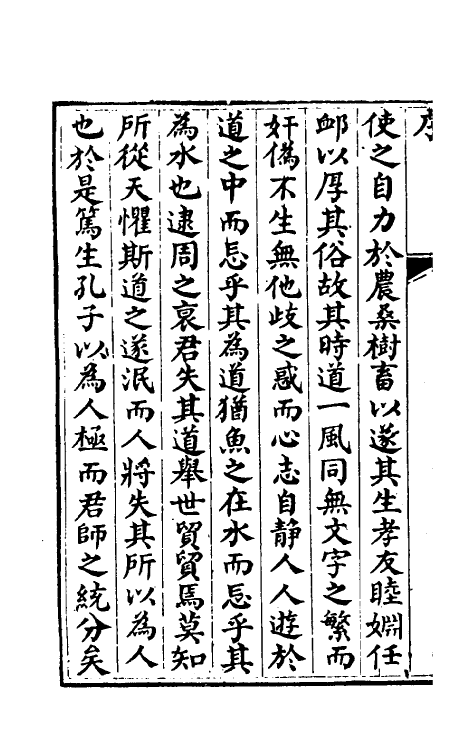 使之自力於農桑樹畜以遂其生孝友睦婣任
䘏以厚其俗故其時道一風同無文字之繁而
奸僞不生無他歧之惑而心志自靜人人遊於
道之中而忘乎其為道猶魚之在水而忘乎其
為水也逮周之衰君失其道舉世貿貿焉莫知
所從天懼斯道之遂泯而人將失其所以為人
也於是篤生孔子以為人極而君師之統分矣